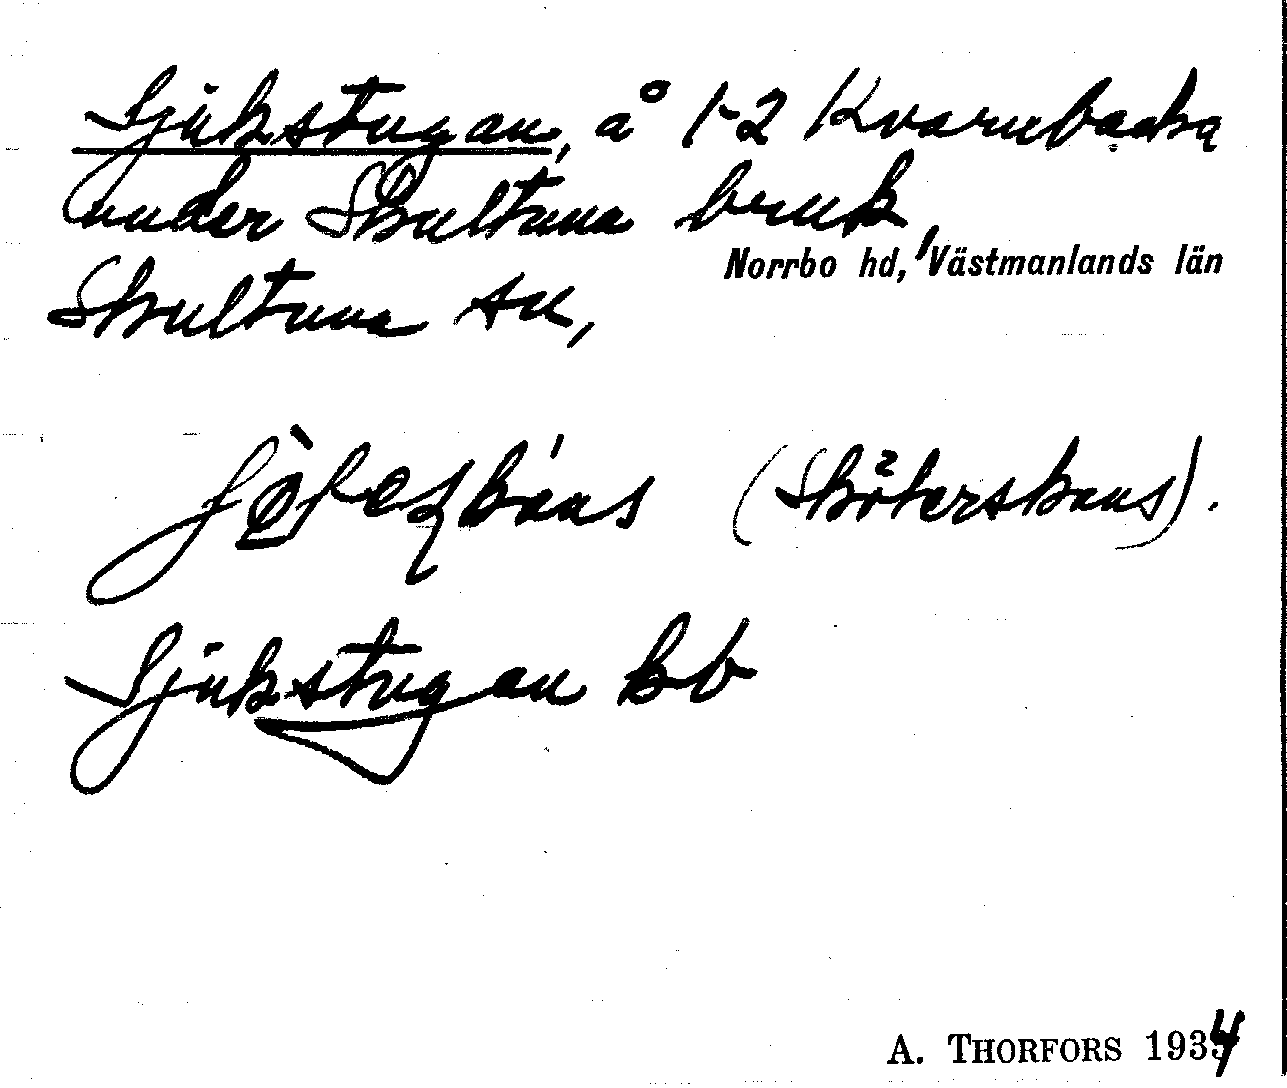 Sjukstugan, å 1-2 Kvarnbacka
under Skultuna bruk,
Norrbo hd, Västmanlands län
Skultuna sn,
(Sköterskans).
Sjukstugan kb
A. THORFORS 1934